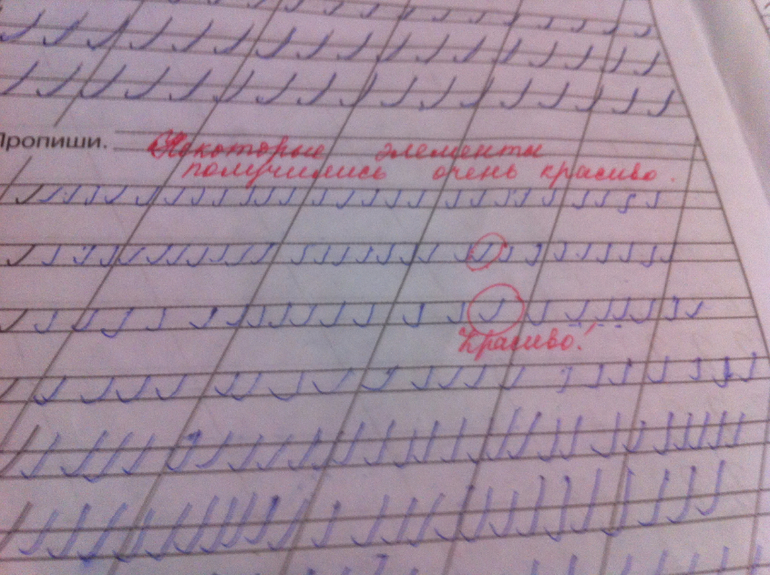 Пропиши.
Некоторые элементы
получились очень красиво.
Красиво!